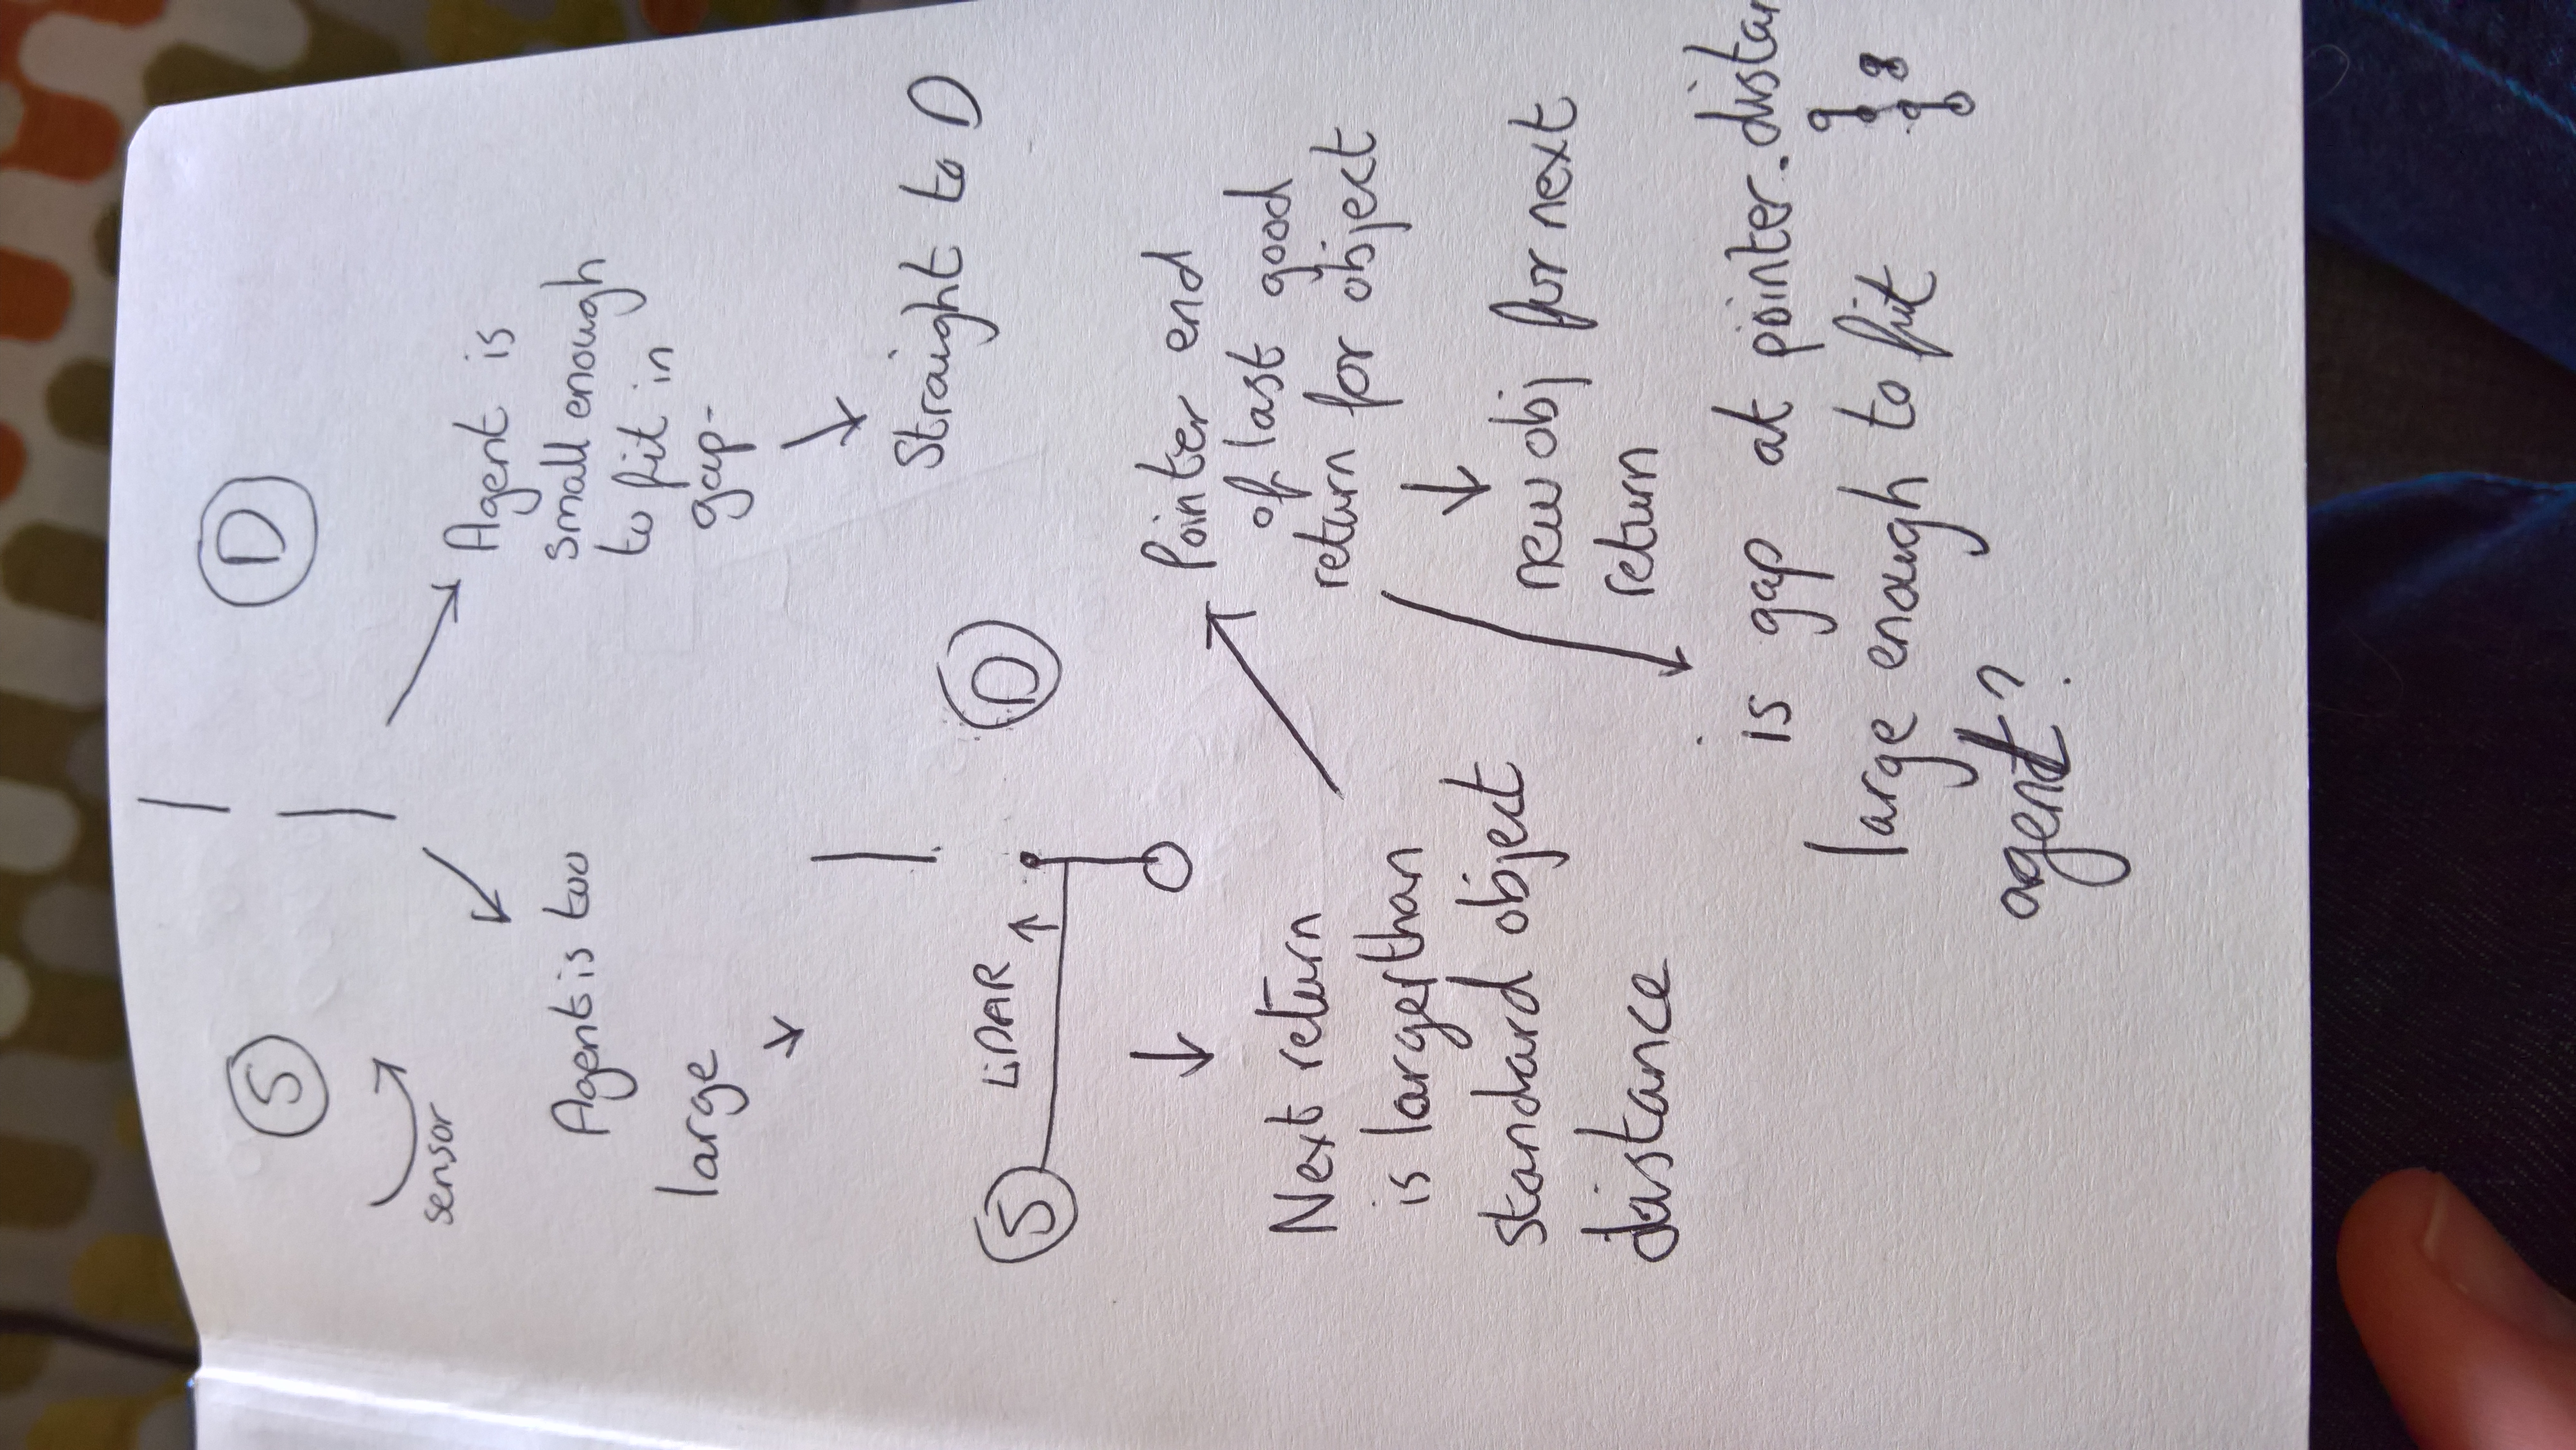 S
D
sensor
Agent is too
large
Agent is
small enough
to fit in
gap-
Straight to D
S
LiDAR
D
Next return
is larger than
standard object
distance
Pointer end
of last good
return for object
new obj for next
return
is gap at pointer.distan
large enough to fit
agent?